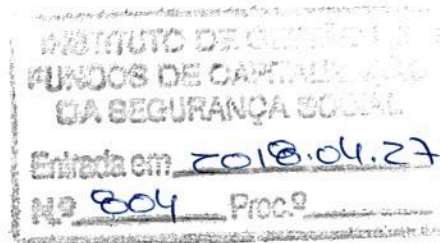 INSTITUTO DE GESTÃO DE
FUNDOS DE CAPITALIZAÇÃO
DA SEGURANÇA SOCIAL
Entrada em 2018.04.27
Nº 804 Proc.º